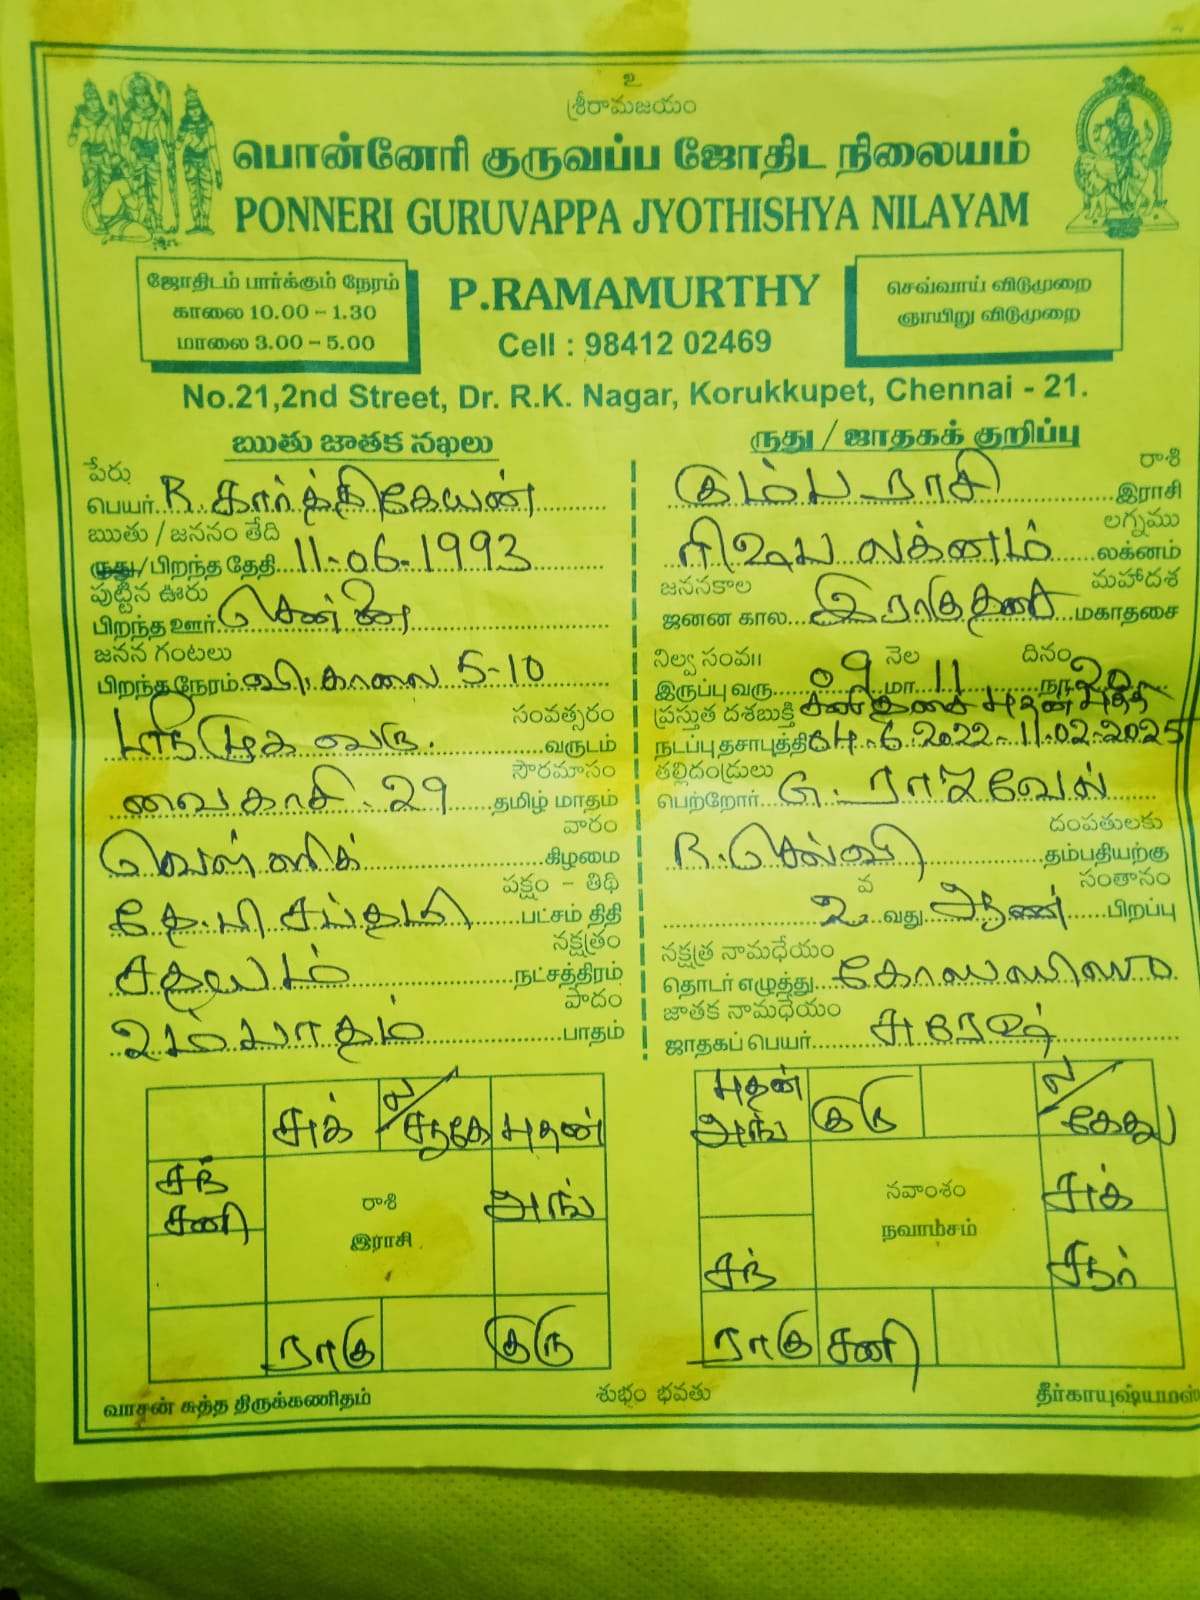 உ
శ్రీరామజయం
பொன்னேரி குருவப்ப ஜோதிட நிலையம்
PONNERI GURUVAPPA JYOTHISHYA NILAYAM
ஜோதிடம் பார்க்கும் நேரம்
காலை 10.00 – 1.30
மாலை 3.00 – 5.00
P.RAMAMURTHY
Cell : 98412 02469
செவ்வாய் விடுமுறை
ஞாயிறு விடுமுறை
No.21,2nd Street, Dr. R.K. Nagar, Korukkupet, Chennai - 21.
ஐது ஜாதக நகலு
ருது / ஜாதகக் குறிப்பு
పేరు
பெயர் R. கார்த்திகேயன்
ఋతు / జననం తేది
ருது/பிறந்த தேதி 11-06-1993
పుట్టిన ఊరు
பிறந்த ஊர் சென்னை
జనన గంటలు
பிறந்த நேரம் வி.காலை 5-10
సంవత్సరం
வருடம்
సౌరమాసం
வைகாசி - 29 தமிழ் மாதம்
వారం
வெள்ளிக் கிழமை
పక்షం – తిథి
தே.பி சப்தமி பட்சம் திதி
నక్షత్రం
சதயம் நட்சத்திரம்
పాదం
2ம் பாதம் பாதம்
రాశి
கும்ப ராசி இராசி
లగ్నము
ரிஷப லக்னம் லக்னம்
జననకాల మహాదశ
ஜனன கால இராகுதசை மகாதசை
నిల్వ సంవ॥ నెల దినం
இருப்பு வரு 09 மா 11 நா 20
ప్రస్తుత దశబుక్తి சனி தசை புதன் புத்தி
நடப்பு தசாபுத்தி 04-6-2022-11-02-2025
తల్లిదండ్రులు
பெற்றோர் G. ராஜவேல்
దంపతులకు
R. செல்வி தம்பதியற்கு
వ సంతానం
2 வது ஆண் பிறப்பு
నక్షత్ర నామధేయం
தொடர் எழுத்து
జాతక నామధేయం
ஜாதகப் பெயர் சுரேஷ்
சுக் ல/ சூகே புதன்
சந் சனி
రాశి
இராசி
அங்
ராகு குரு
புதன் அங் குரு ல/ கேது
నవాంశం
நவாம்சம்
சுக்
சந் சூர்
ராகு சனி
வாசன் சுத்த திருக்கணிதம்
శుభం భవతు
தீர்காயுஷ்யமஸ்